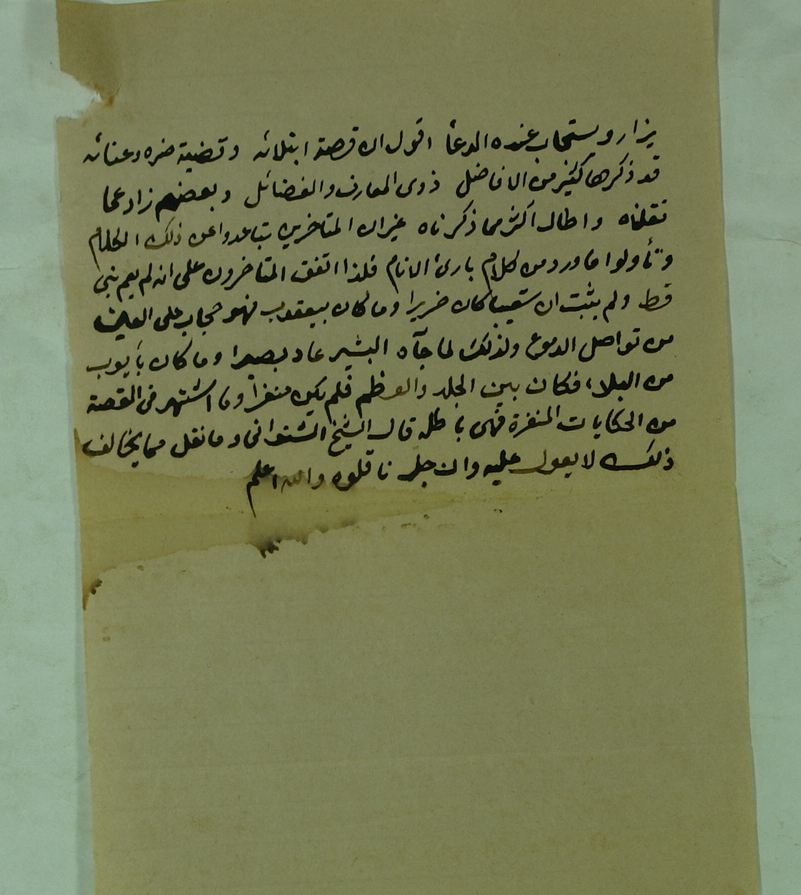 يزار ويستجاب عنده الدعأ اقول ان قصة ابتلائه وقضية ضره وعنائه
قد ذكرها كثير من الافاضل ذوى المعارف والفضائل وبعضهم زاد عما
نقلناه واطال اكثر مما ذكرناه غير ان المتاخرين تباعدوا عن ذلك الكلام
وتأولوا ما ورد من كلام بارئ الانام فلذا اتفق المتاخرون على انه لم يعم نبى
قط ولم يثبت ان شعيبا كان ضريرا وما كان بيعقوب فهو حجاب على العين
من تواصل الدموع ولذلك لما جآه البشير عاد بصيرا وما كان بأيوب
من البلاء فكان بين الجلد والعظم فلم يكن منفرا وما اشتهر فى القصة
من الحكايات المنفرة فهى باطلة قال الشيخ الشنوانى وما نقل مما يخالف
ذلك لا يعول عليه وان جل ناقلوه والله اعلم